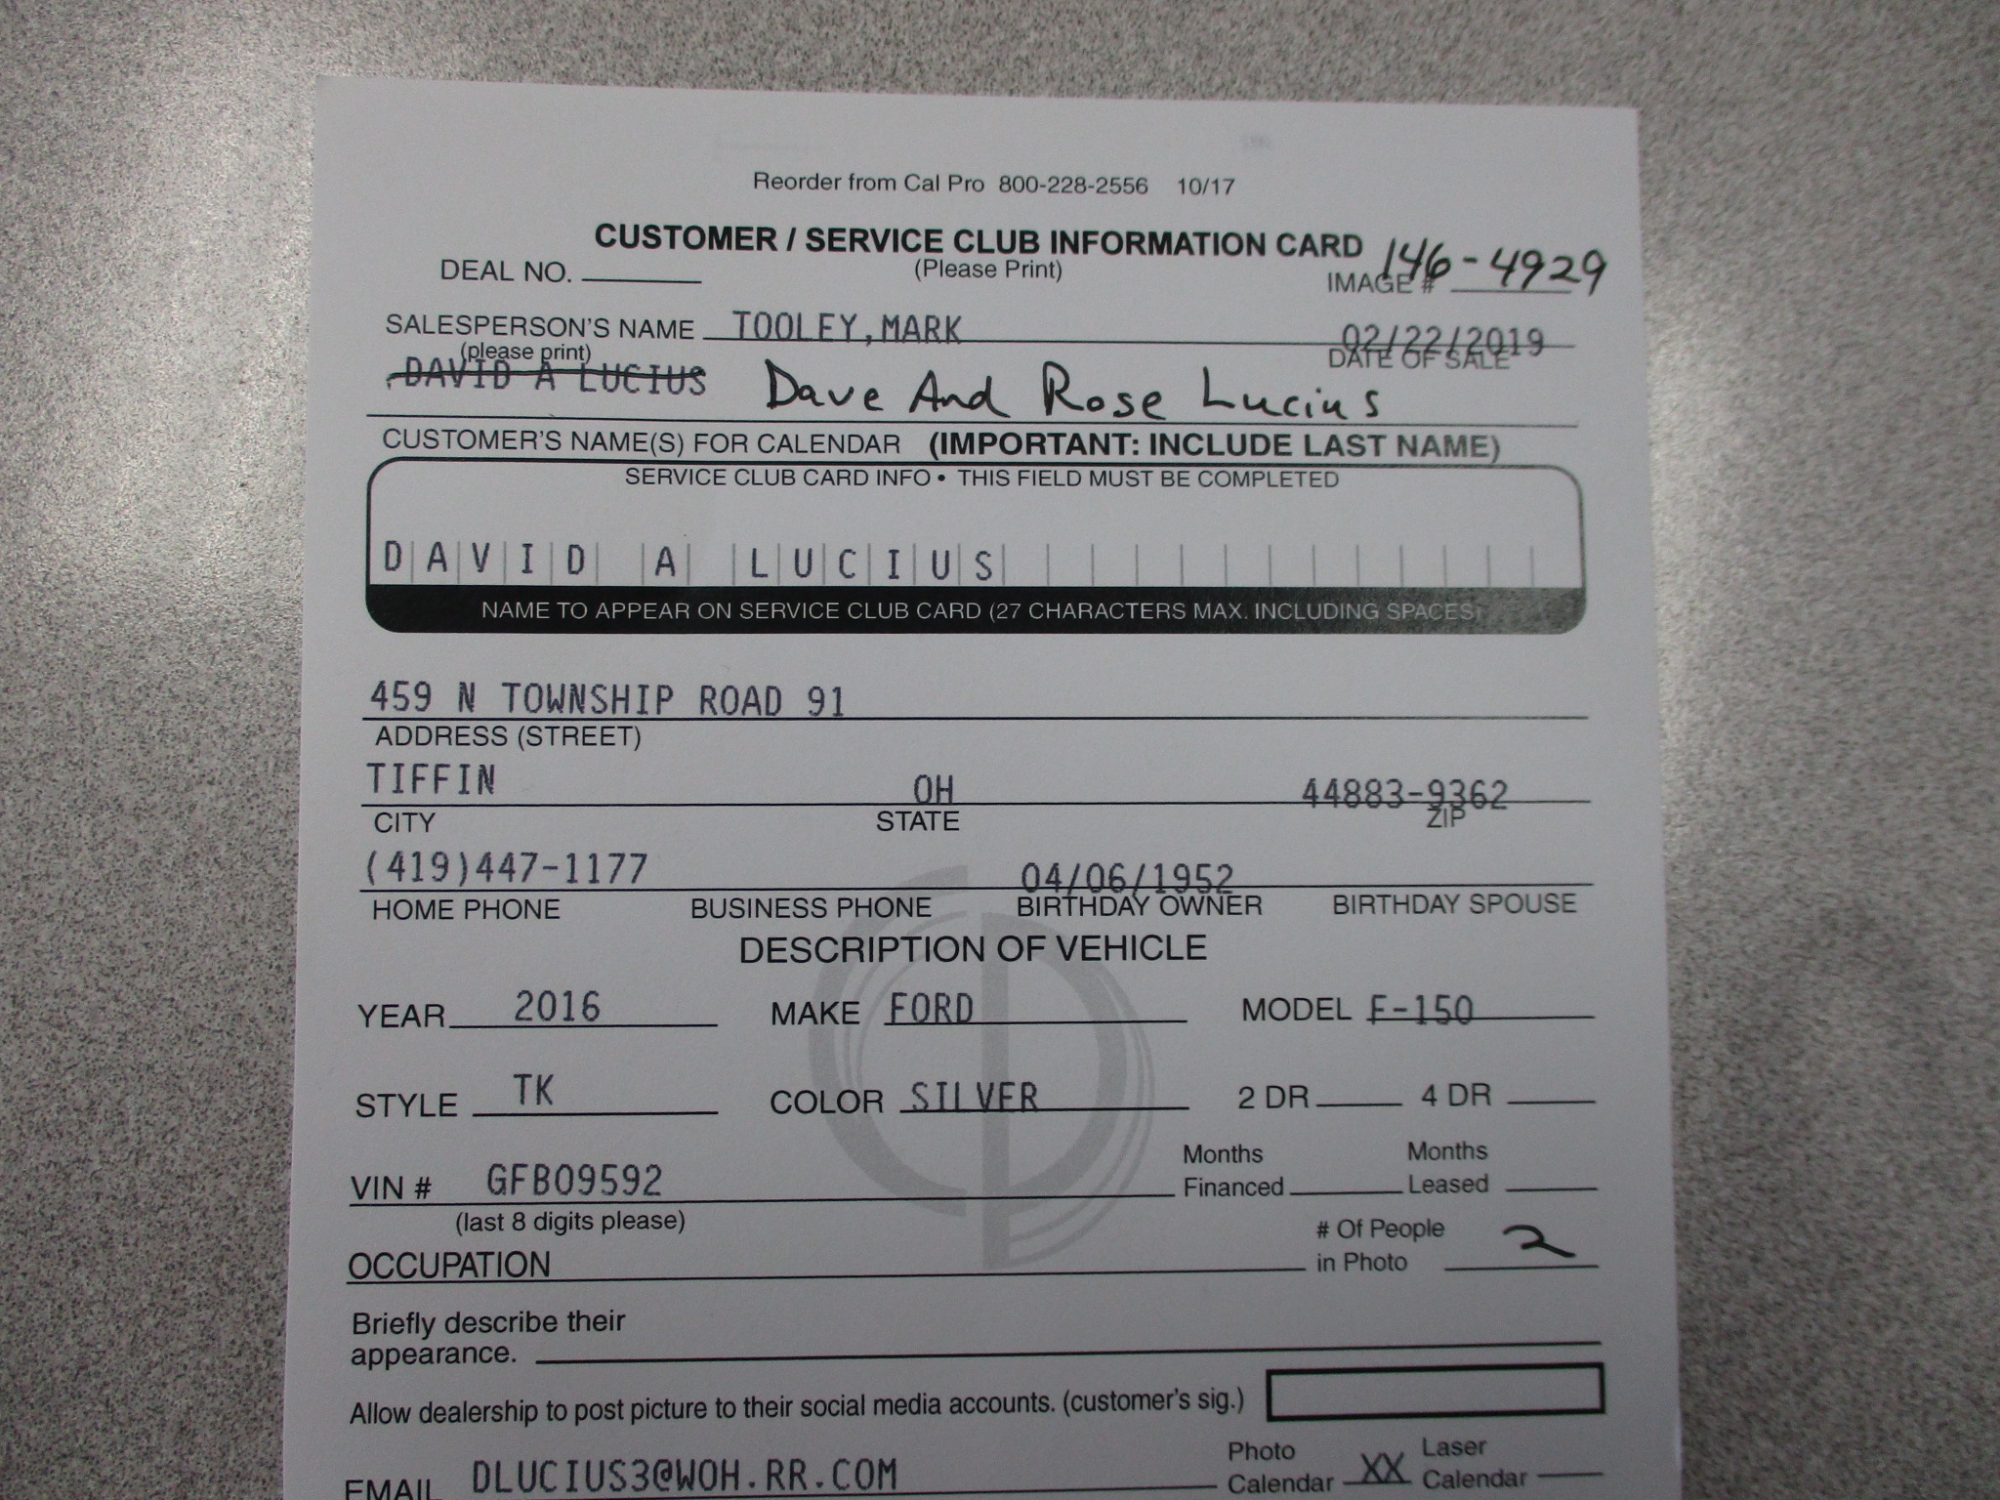 Reorder from Cal Pro 800-228-2556 10/17
CUSTOMER / SERVICE CLUB INFORMATION CARD
DEAL NO. (Please Print) IMAGE # 146-4929
SALESPERSON'S NAME TOOLEY,MARK 02/22/2019
(please print) DATE OF SALE
DAVID A LUCIUS Dave And Rose Lucius
CUSTOMER'S NAME(S) FOR CALENDAR (IMPORTANT: INCLUDE LAST NAME)
SERVICE CLUB CARD INFO • THIS FIELD MUST BE COMPLETED
DAVID A LUCIUS
NAME TO APPEAR ON SERVICE CLUB CARD (27 CHARACTERS MAX. INCLUDING SPACES)
459 N TOWNSHIP ROAD 91
ADDRESS (STREET)
TIFFIN OH 44883-9362
CITY STATE ZIP
(419)447-1177 04/06/1952
HOME PHONE BUSINESS PHONE BIRTHDAY OWNER BIRTHDAY SPOUSE
DESCRIPTION OF VEHICLE
YEAR 2016 MAKE FORD MODEL F-150
STYLE TK COLOR SILVER 2 DR 4 DR
VIN # GFB09592 Months Financed Months Leased
(last 8 digits please)
OCCUPATION # Of People in Photo 2
Briefly describe their
appearance.
Allow dealership to post picture to their social media accounts. (customer's sig.)
EMAIL DLUCIUS3@WOH.RR.COM Photo Calendar XX Laser Calendar